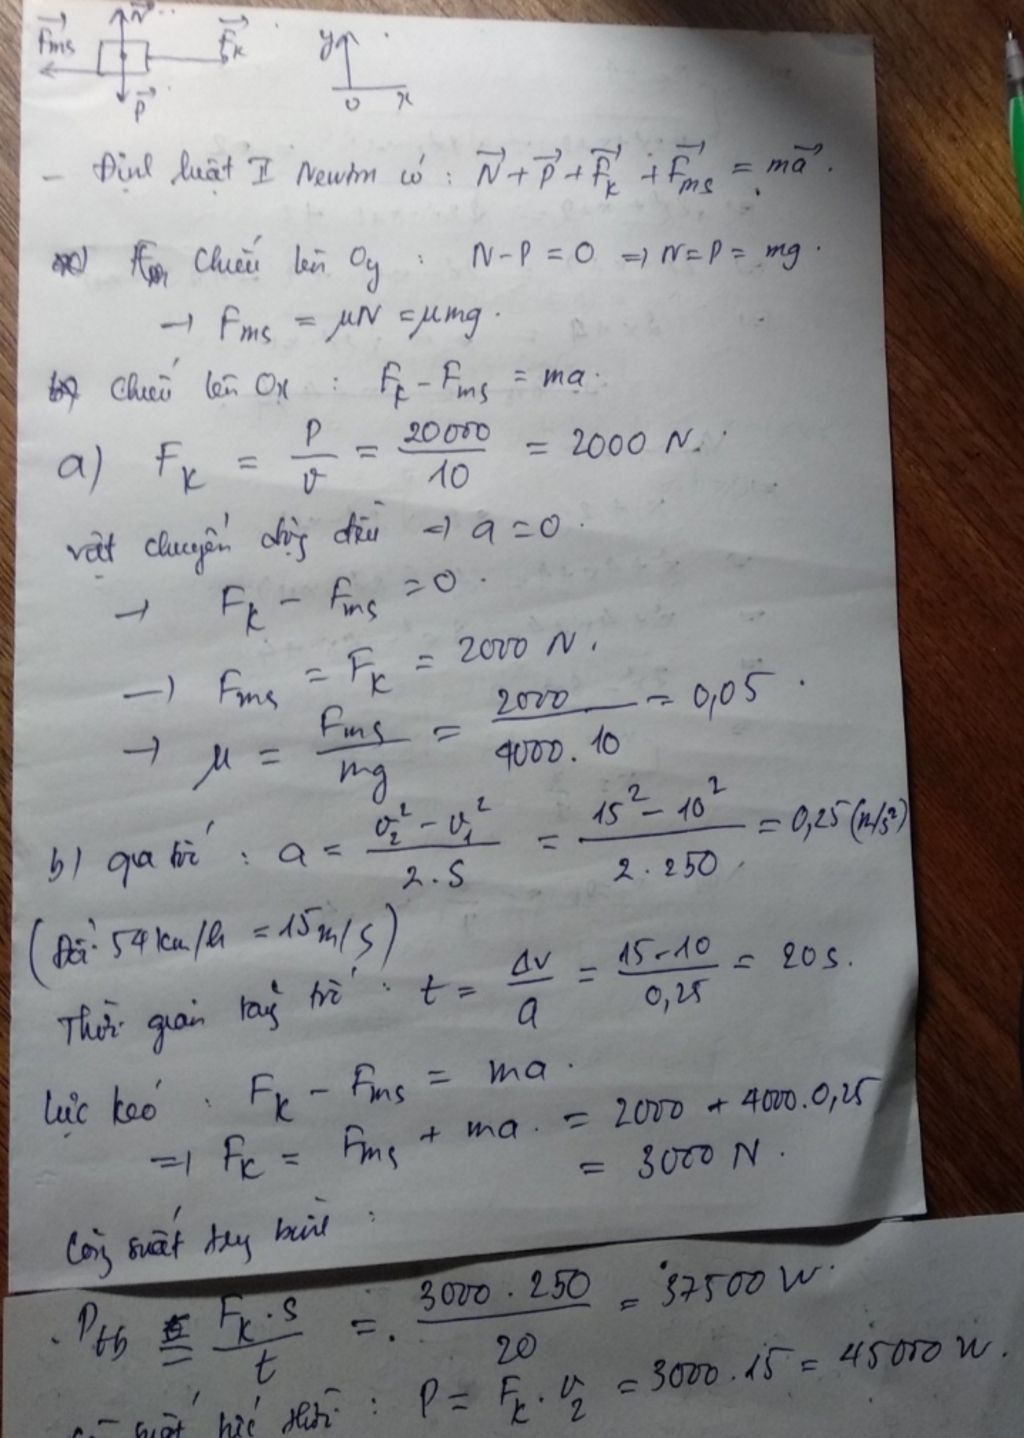 N
Fms Fk
P
y
O x
- Định luật II Newton có : N + P + Fk + Fms = ma.
Chiếu lên Oy : N - P = 0 => N = P = mg.
→ Fms = μN = μmg.
Chiếu lên Ox : Fk - Fms = ma.
a) Fk = P/v = 20000/10 = 2000 N.
vật chuyển động đều => a = 0.
→ Fk - Fms = 0.
→ Fms = Fk = 2000 N.
→ μ = Fms/mg = 2000/4000.10 = 0,05.
b) gia tốc : a = v₂² - v₁²/2.S = 15² - 10²/2.250 = 0,25 (m/s²)
(Đổi 54 km/h = 15 m/s)
Thời gian tăng tốc : t = Δv/a = 15-10/0,25 = 20 s.
lực kéo : Fk - Fms = ma.
=> Fk = Fms + ma. = 2000 + 4000.0,25
= 3000 N.
Công suất trung bình :
. Ptb = Fk.s/t = 3000.250/20 = 37500 W.
suất tức thời : P = Fk.v₂ = 3000.15 = 45000 W.